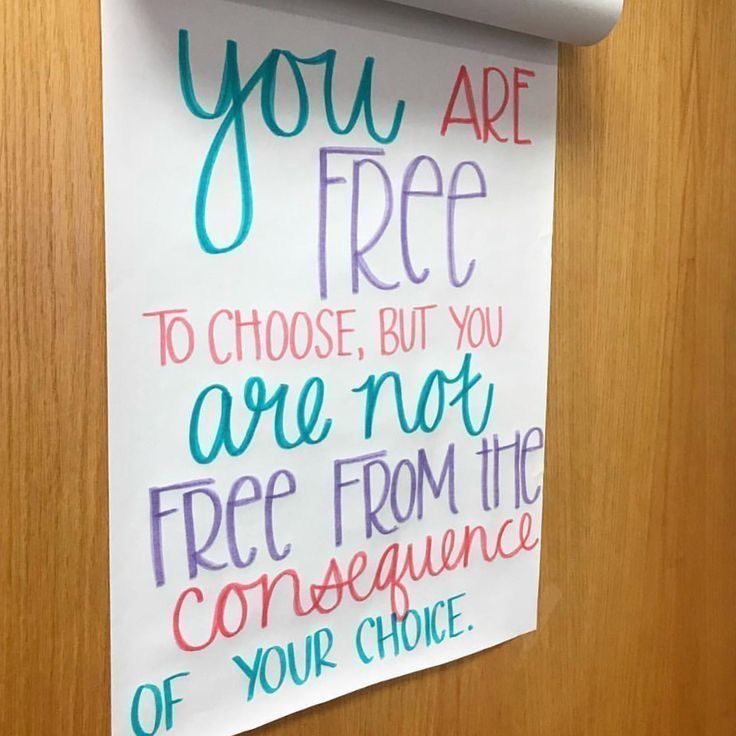 you ARE
FRee
TO CHOOSE, BUT YOU
are not
FRee FROM tHe
consequence
OF YOUR CHOICE.